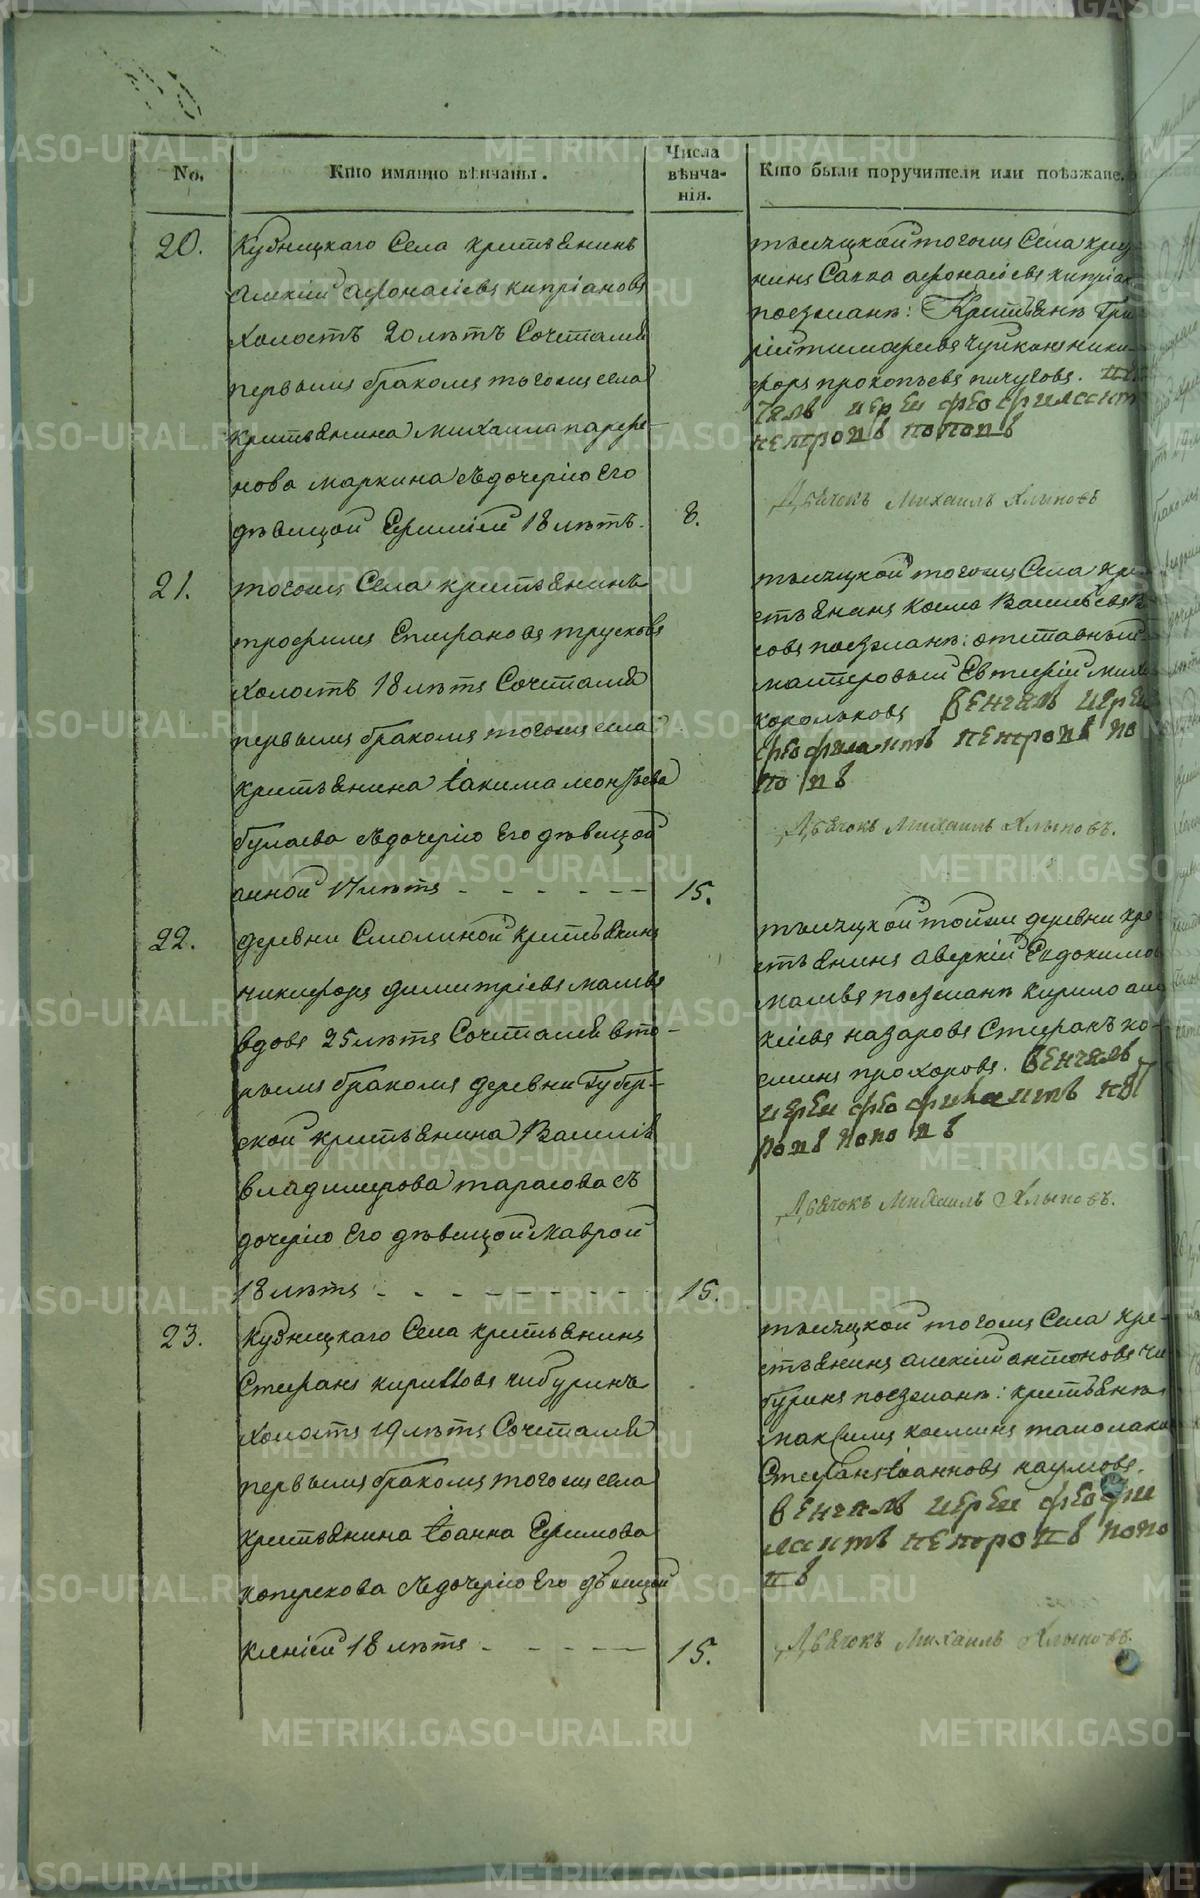 No.
Кто имянно вѣнчаны.
Числа
вѣнча-
нія.
Кто были поручители или поѣзжане.
20.
Села крестьянинъ
Алексій Афонасіевъ Кипріановъ
холостъ 20 лѣтъ Сочетался
первымъ бракомъ тогожъ села
крестьянина Михаила
нова Маркина съ дочерію Его
дѣвицой 18 лѣтъ.
8.
тысяцкой тогожъ Села кресть-
нинъ Савва Афонасіевъ Кипріан
поезжанъ: Крестьянъ Гри
форъ Прокопьевъ Пичуговъ.
чалъ иерей Феофилактъ
Петровъ Поповъ
Дьячокъ Михаилъ Хлыновъ
21.
тогожъ Села крестьянинъ
Трофимъ
холостъ 18 лѣтъ Сочетался
первымъ бракомъ тогожъ села
крестьянина Іакима Леонтьева
Булаева съ дочерію Его дѣвицой
Анной 17 лѣтъ - - - - - -
15.
тысяцкой тогожъ Села кре
стьянинъ Косма Васильевъ
совъ поезжанъ: отставный
мастеровый Евтифій Миха
Корольковъ Венчалъ иерей
Феофилактъ Петровъ По
по въ
Дьячокъ Михаилъ Хлыновъ.
22.
деревни Смолиной крестьянинъ
Никифоръ Димитріевъ
вдовъ 25 лѣтъ Сочетался вто-
рымъ бракомъ деревни Губер-
ской крестьянина Василія
Владимерова Тарасова съ
дочерію Его дѣвицой Маврой
18 лѣтъ - - - - - - -
15.
тысяцкой тойже деревни кре
стьянинъ Аверкій Евдокимов
поезжанъ Кирило Але
ксіевъ Назаровъ Стефанъ Ко-
сминъ Прохоровъ. Венчалъ
иерей Феофилактъ Пет
ровъ Попо въ
Дьячокъ Михаилъ Хлыновъ.
23.
Села крестьянинъ
Стефанъ Кириловъ Чибуринъ
холостъ 19 лѣтъ Сочетался
первымъ бракомъ тогожъ села
крестьянина Іоанна Ефимова
съ дочерію Его дѣвицой
Ксеніей 18 лѣтъ - - - - -
15.
тысяцкой тогожъ Села кре-
стьянинъ Алексій Антоновъ Чи
буринъ поезжанъ: крестьянъ
Максимъ Косминъ
Стефанъ Іоанновъ Наумовъ.
Венчалъ иерей Феофи
лактъ Петровъ Попо
въ
Дьячокъ Михаилъ Хлыновъ.
METRIKI.GASO-URAL.RU